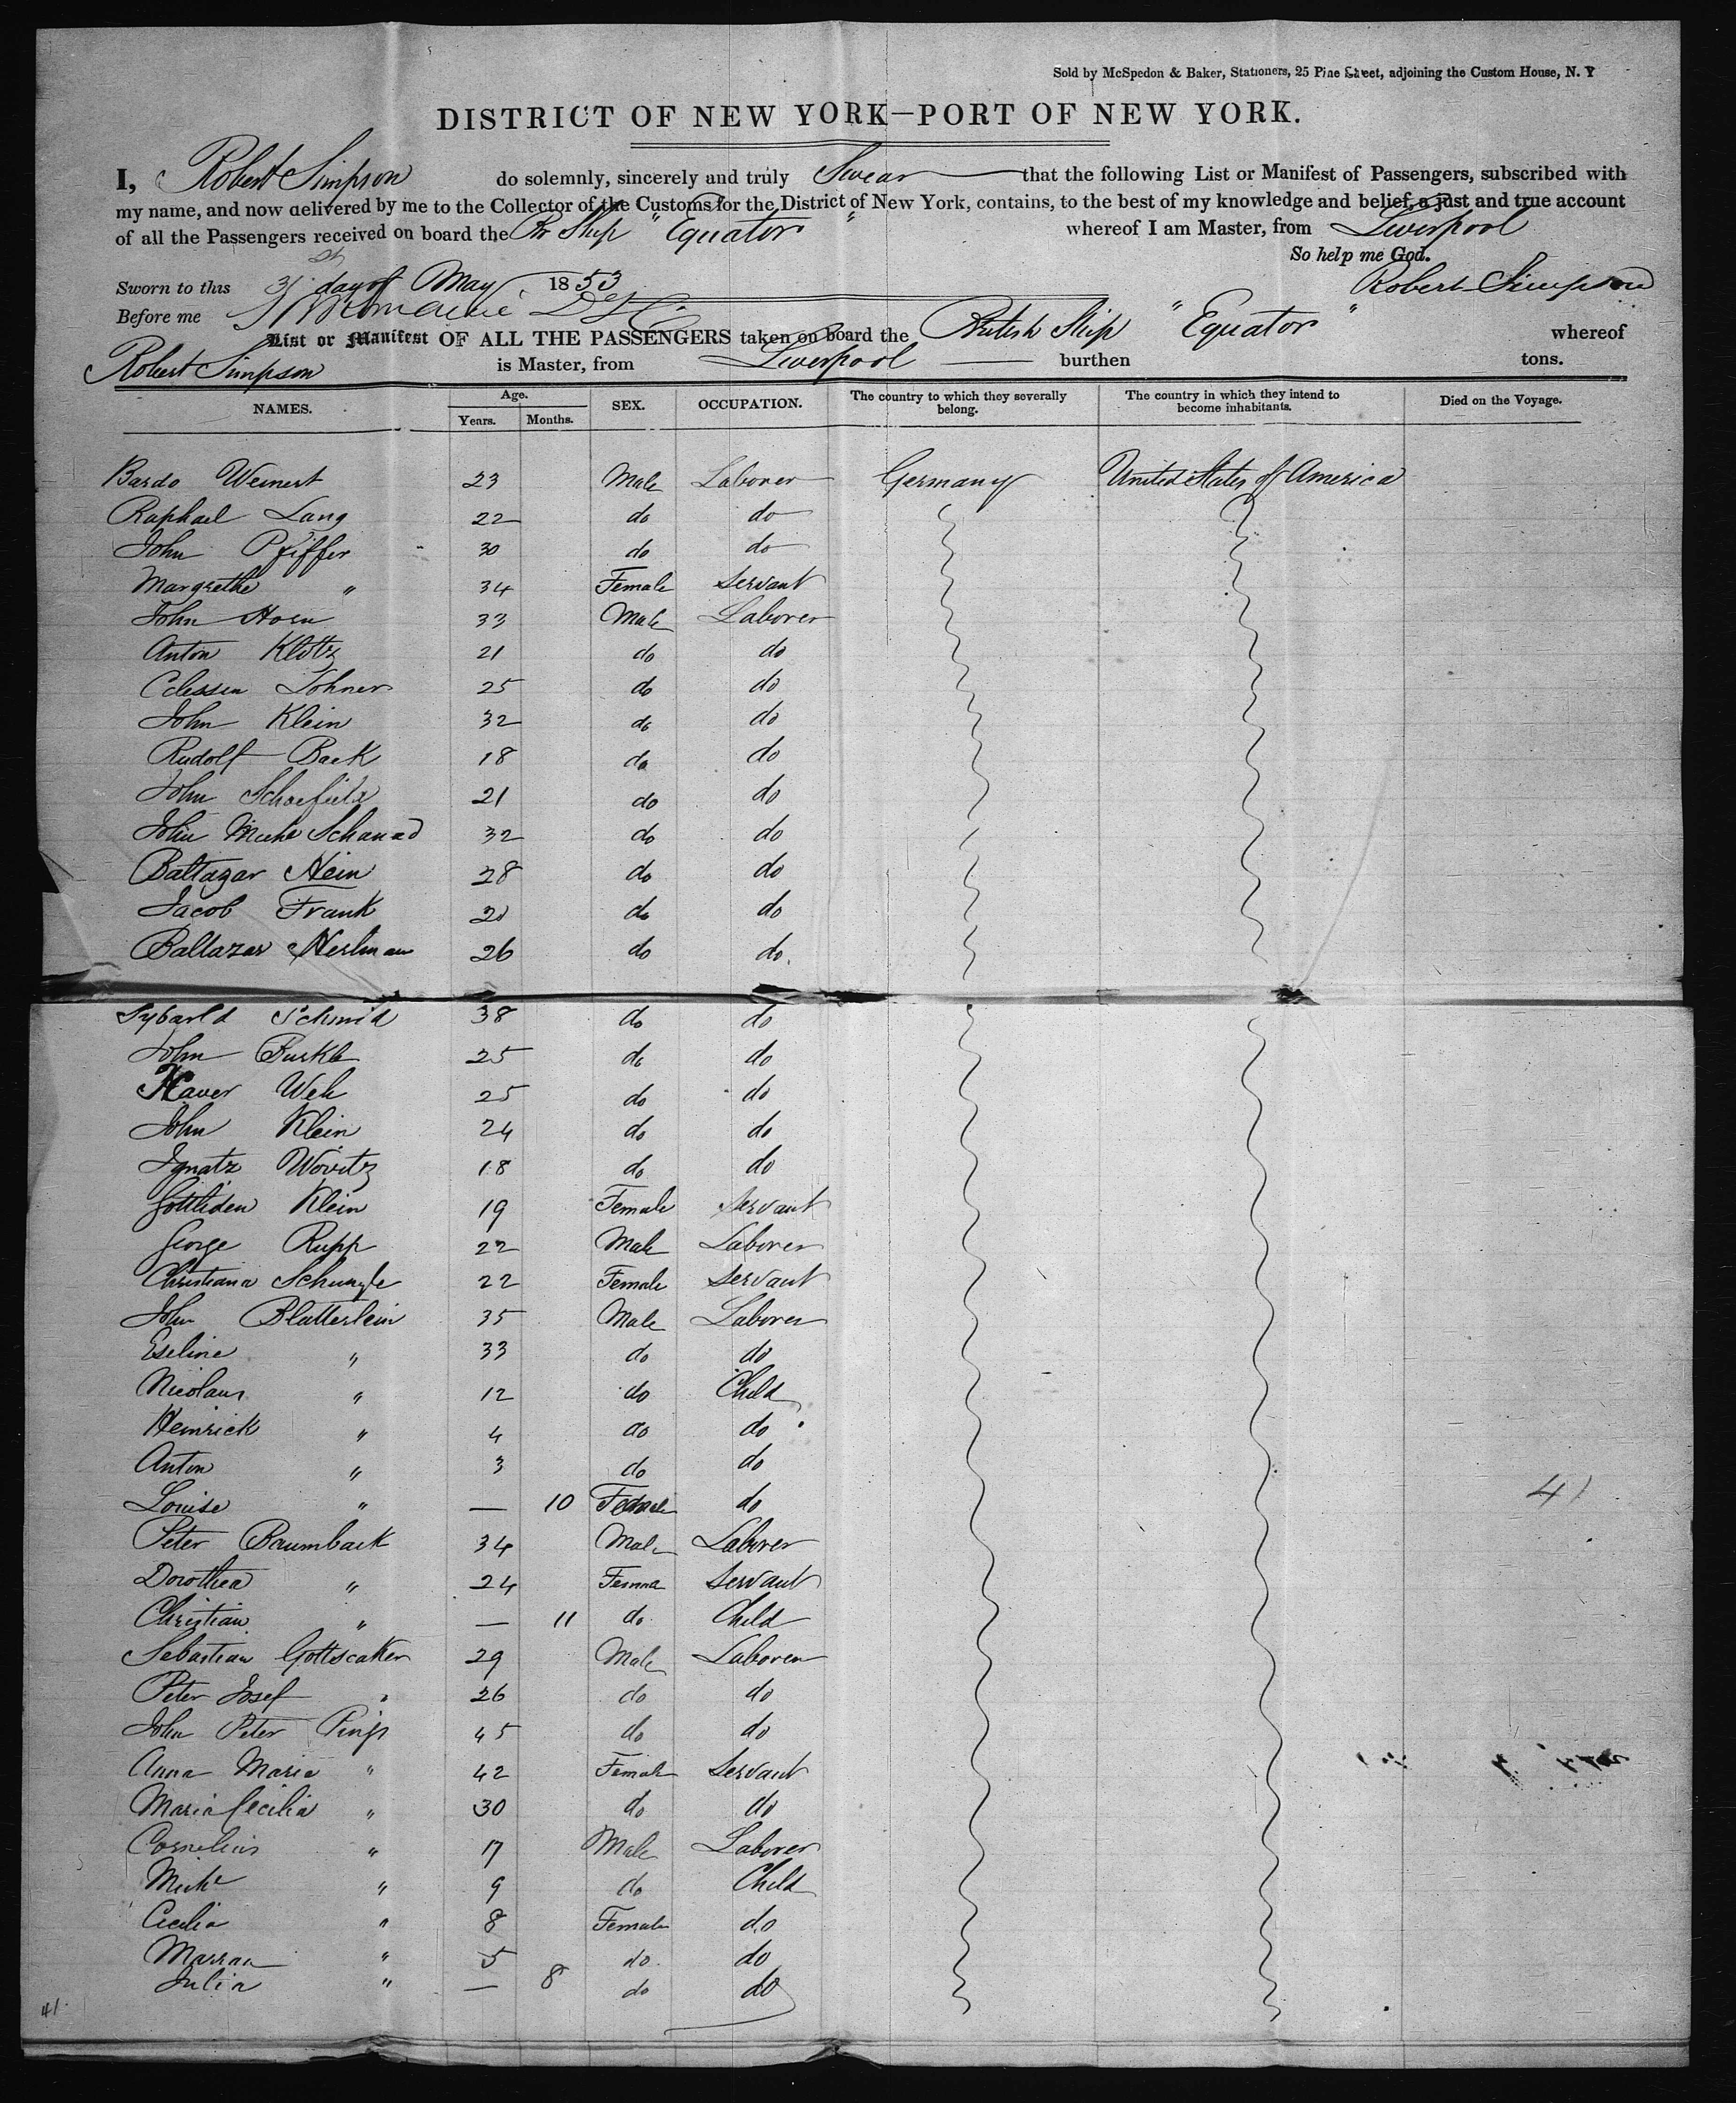 Sold by McSpedon & Baker, Stationers, 25 Pine Street, adjoining the Custom House, N. Y
DISTRICT OF NEW YORK—PORT OF NEW YORK.
I, Robert Simpson do solemnly, sincerely and truly Swear that the following List or Manifest of Passengers, subscribed with
my name, and now delivered by me to the Collector of the Customs for the District of New York, contains, to the best of my knowledge and belief, a just and true account
of all the Passengers received on board the Br Ship "Equator" whereof I am Master, from Liverpool
So help me God.
Sworn to this 31st day of May 1853 Robert Simpson
Before me
List or Manifest OF ALL THE PASSENGERS taken on board the British Ship "Equator" whereof
Robert Simpson is Master, from Liverpool burthen tons.
NAMES. Age. Years. Months. SEX. OCCUPATION. The country to which they severally belong. The country in which they intend to become inhabitants. Died on the Voyage.
Bardo Weinert 23 Male Laborer Germany United States of America
Raphael Lang 22 do do
John Pfiffer 30 do do
Margrethe " 34 Female Servant
John Horn 33 Male Laborer
Anton Klotz 21 do do
Lohner 25 do do
John Klein 32 do do
Rudolf Back 18 do do
John 21 do do
John Miche 32 do do
Baltazar Hein 28 do do
Jacob Frank 20 do do
Baltazar Herlman 26 do do.
Schmid 38 do do
John Burkle 25 do do
Xaver Weh 25 do do
John Klein 24 do do
Ignatz Wovitz 18 do do
Klein 19 Female Servant
George Rupp 22 Male Laborer
Christiana 22 Female Servant
John Blatterlein 35 Male Laborer
Eseline " 33 do do
Nicolaus " 12 do Child
Heinrick " 4 do do
Anton " 3 do do
Louise " — 10 Female do
41
Peter Baumback 34 Male Laborer
Dorothea " 24 Femna Servant
Christian " — 11 do Child
Sebastian Gottscalker 29 Male Laborer
Peter Josef " 26 do do
John Peter Pings 45 do do
Anna Maria " 42 Female Servant
Maria Cecilia " 30 do do
Cornelius " 17 Male Laborer
Miche " 9 do Child
Cecilia " 8 Female do
" 5 do do
Julia " — 8 do do
41.